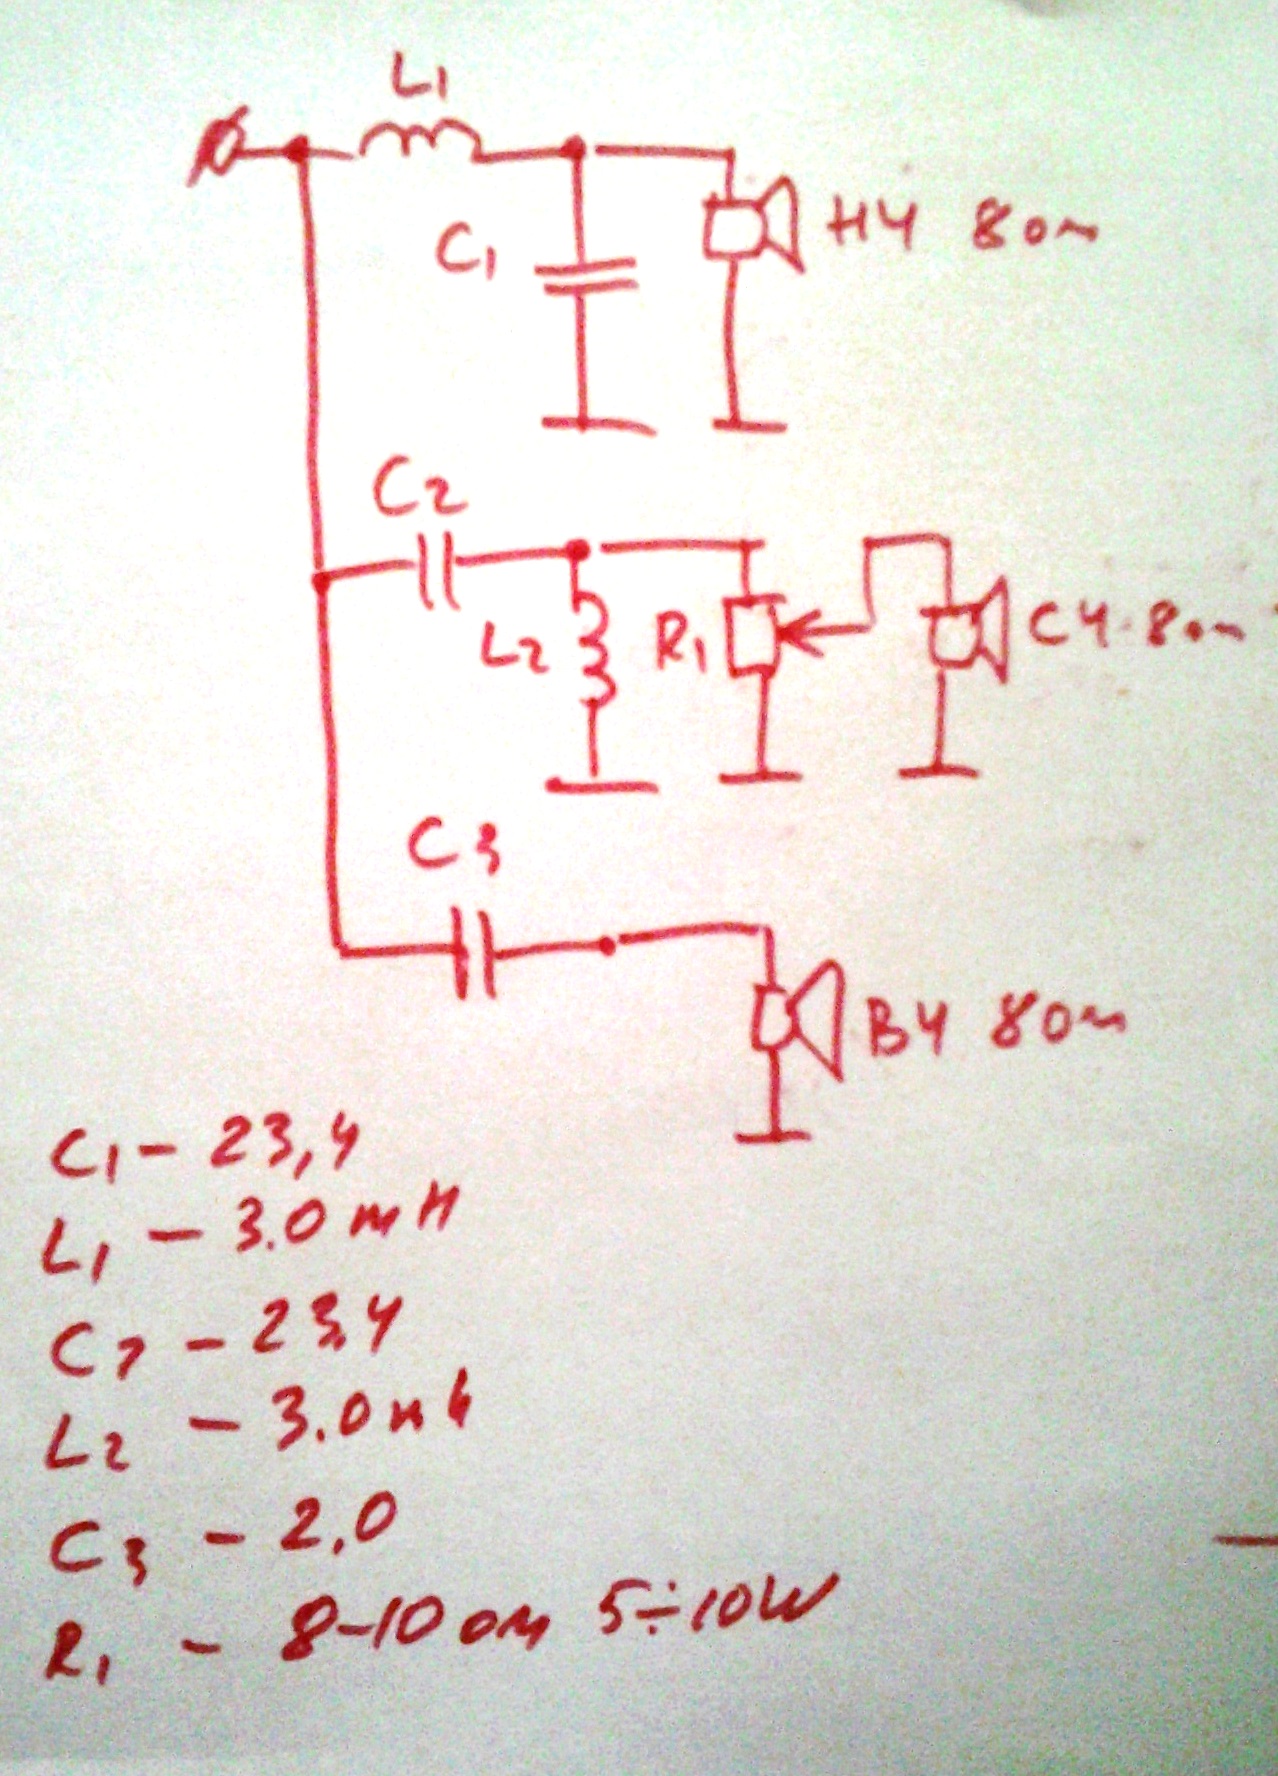 L1
C1
НЧ 8 ом
C2
L2
R1
СЧ 8 ом
C3
ВЧ 8 ом
C1 – 23,4
L1 – 3.0 mH
C2 – 23,4
L2 – 3.0 mh
C3 – 2,0
R1 – 8-10 ом 5÷10W